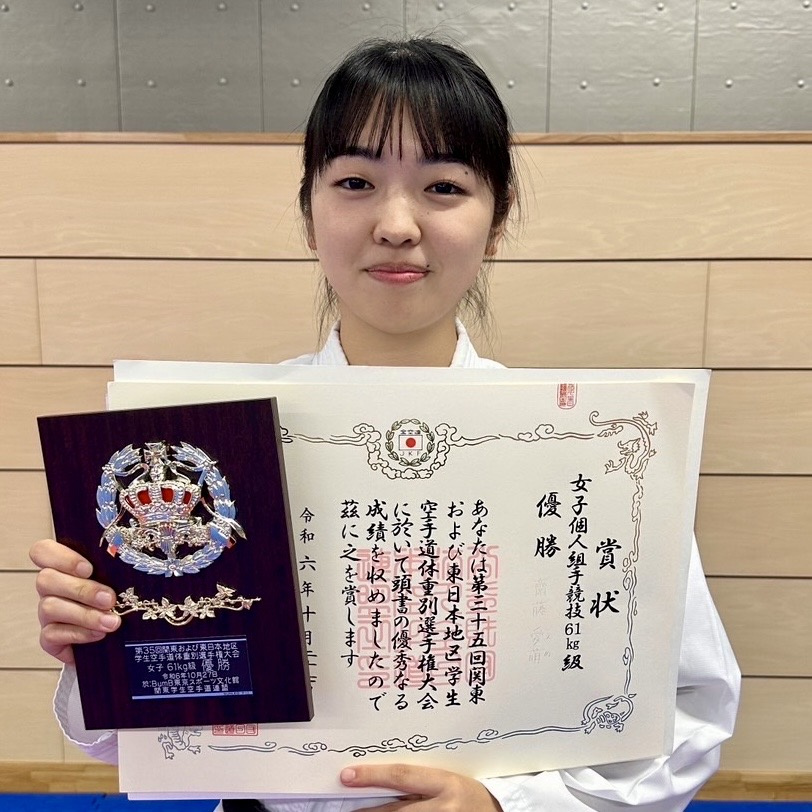 全空連
JKF
賞状
女子個人組手競技61kg級
優勝
あなたは第三十五回関東
および東日本地区学生
空手道体重別選手権大会
に於いて頭書の優秀なる
成績を収めましたので
茲に之を賞します
令和六年十月二
第35回関東および東日本地区
学生空手道体重別選手権大会
女子 61kg級 優勝
令和6年10月27日
於:BumB東京スポーツ文化館
関東学生空手道連盟